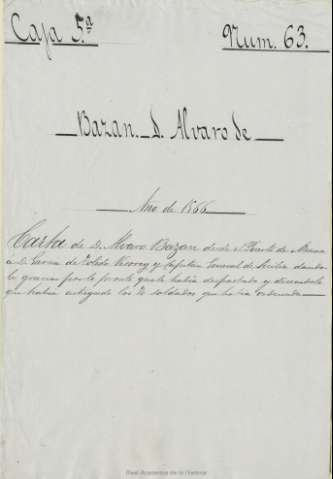 Caja 5.ª Num. 63.
Bazan. D. Alvaro de
Año de 1566
Carta de D. Alvaro Bazan desde el Puerto de
a D. Garcia de Toledo Virrey y Capitan General de Sicilia dandole
gracias por lo pronto que le habia despachado y diciendole
que habia entregado los soldados que habia ordenado
Real Academia de la Historia